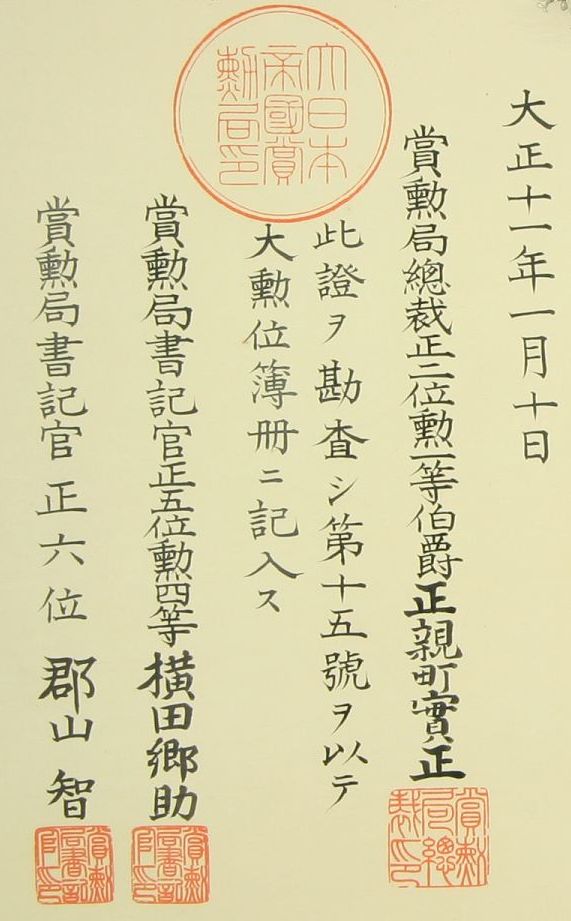 大正十一年一月十日
賞勲局總裁正二位勲一等伯爵正親町實正
此證ヲ勘査シ第十五號ヲ以テ
大勲位簿册ニ記入ス
賞勲局書記官正五位勲四等横田郷助
賞勲局書記官正六位郡山智
大日本
帝國賞
勲局印
賞勲
局總
裁印
賞勲
局書記
官印
賞勲
局書記
官印